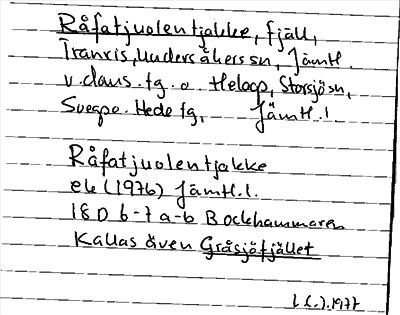 Råfatjuolentjakke, fjäll,
Tranris, Undersåkers sn, Jämtl.
v. daus. tg. o Helagp, Storsjö sn,
Svegs o. Hede tg, Jämtl. l
Råfatjuolentjakke
ek (1976) Jämtl. l.
18D 6-7 a-b Bockhammaren
Kallas även Gråsjöfjället
1977